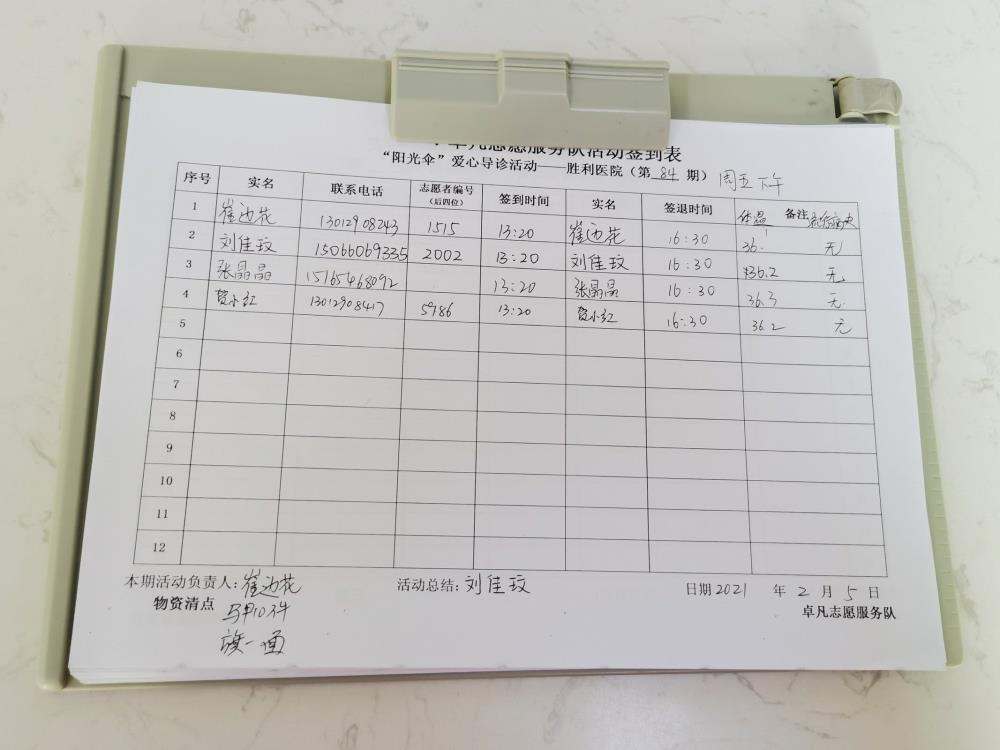 卓凡志愿服务队活动签到表
“阳光伞”爱心导诊活动——胜利医院（第 84 期） 周五下午
序号 实名 联系电话 志愿者编号（后四位） 签到时间 实名 签退时间 体温 备注
1 崔边花 13012908243 1515 13:20 崔边花 16:30 36. 无
2 刘佳玟 15066069335 2002 13:20 刘佳玟 16:30 36.2 无
3 张晶晶 15165468092 13:20 张晶晶 16:30 36.3 无
4 贺小红 13012908417 5986 13:20 贺小红 16:30 36.2 无
5
6
7
8
9
10
11
12
本期活动负责人：崔边花 活动总结：刘佳玟 日期 2021 年 2 月 5 日
物资清点 马甲10件 卓凡志愿服务队
旗一面